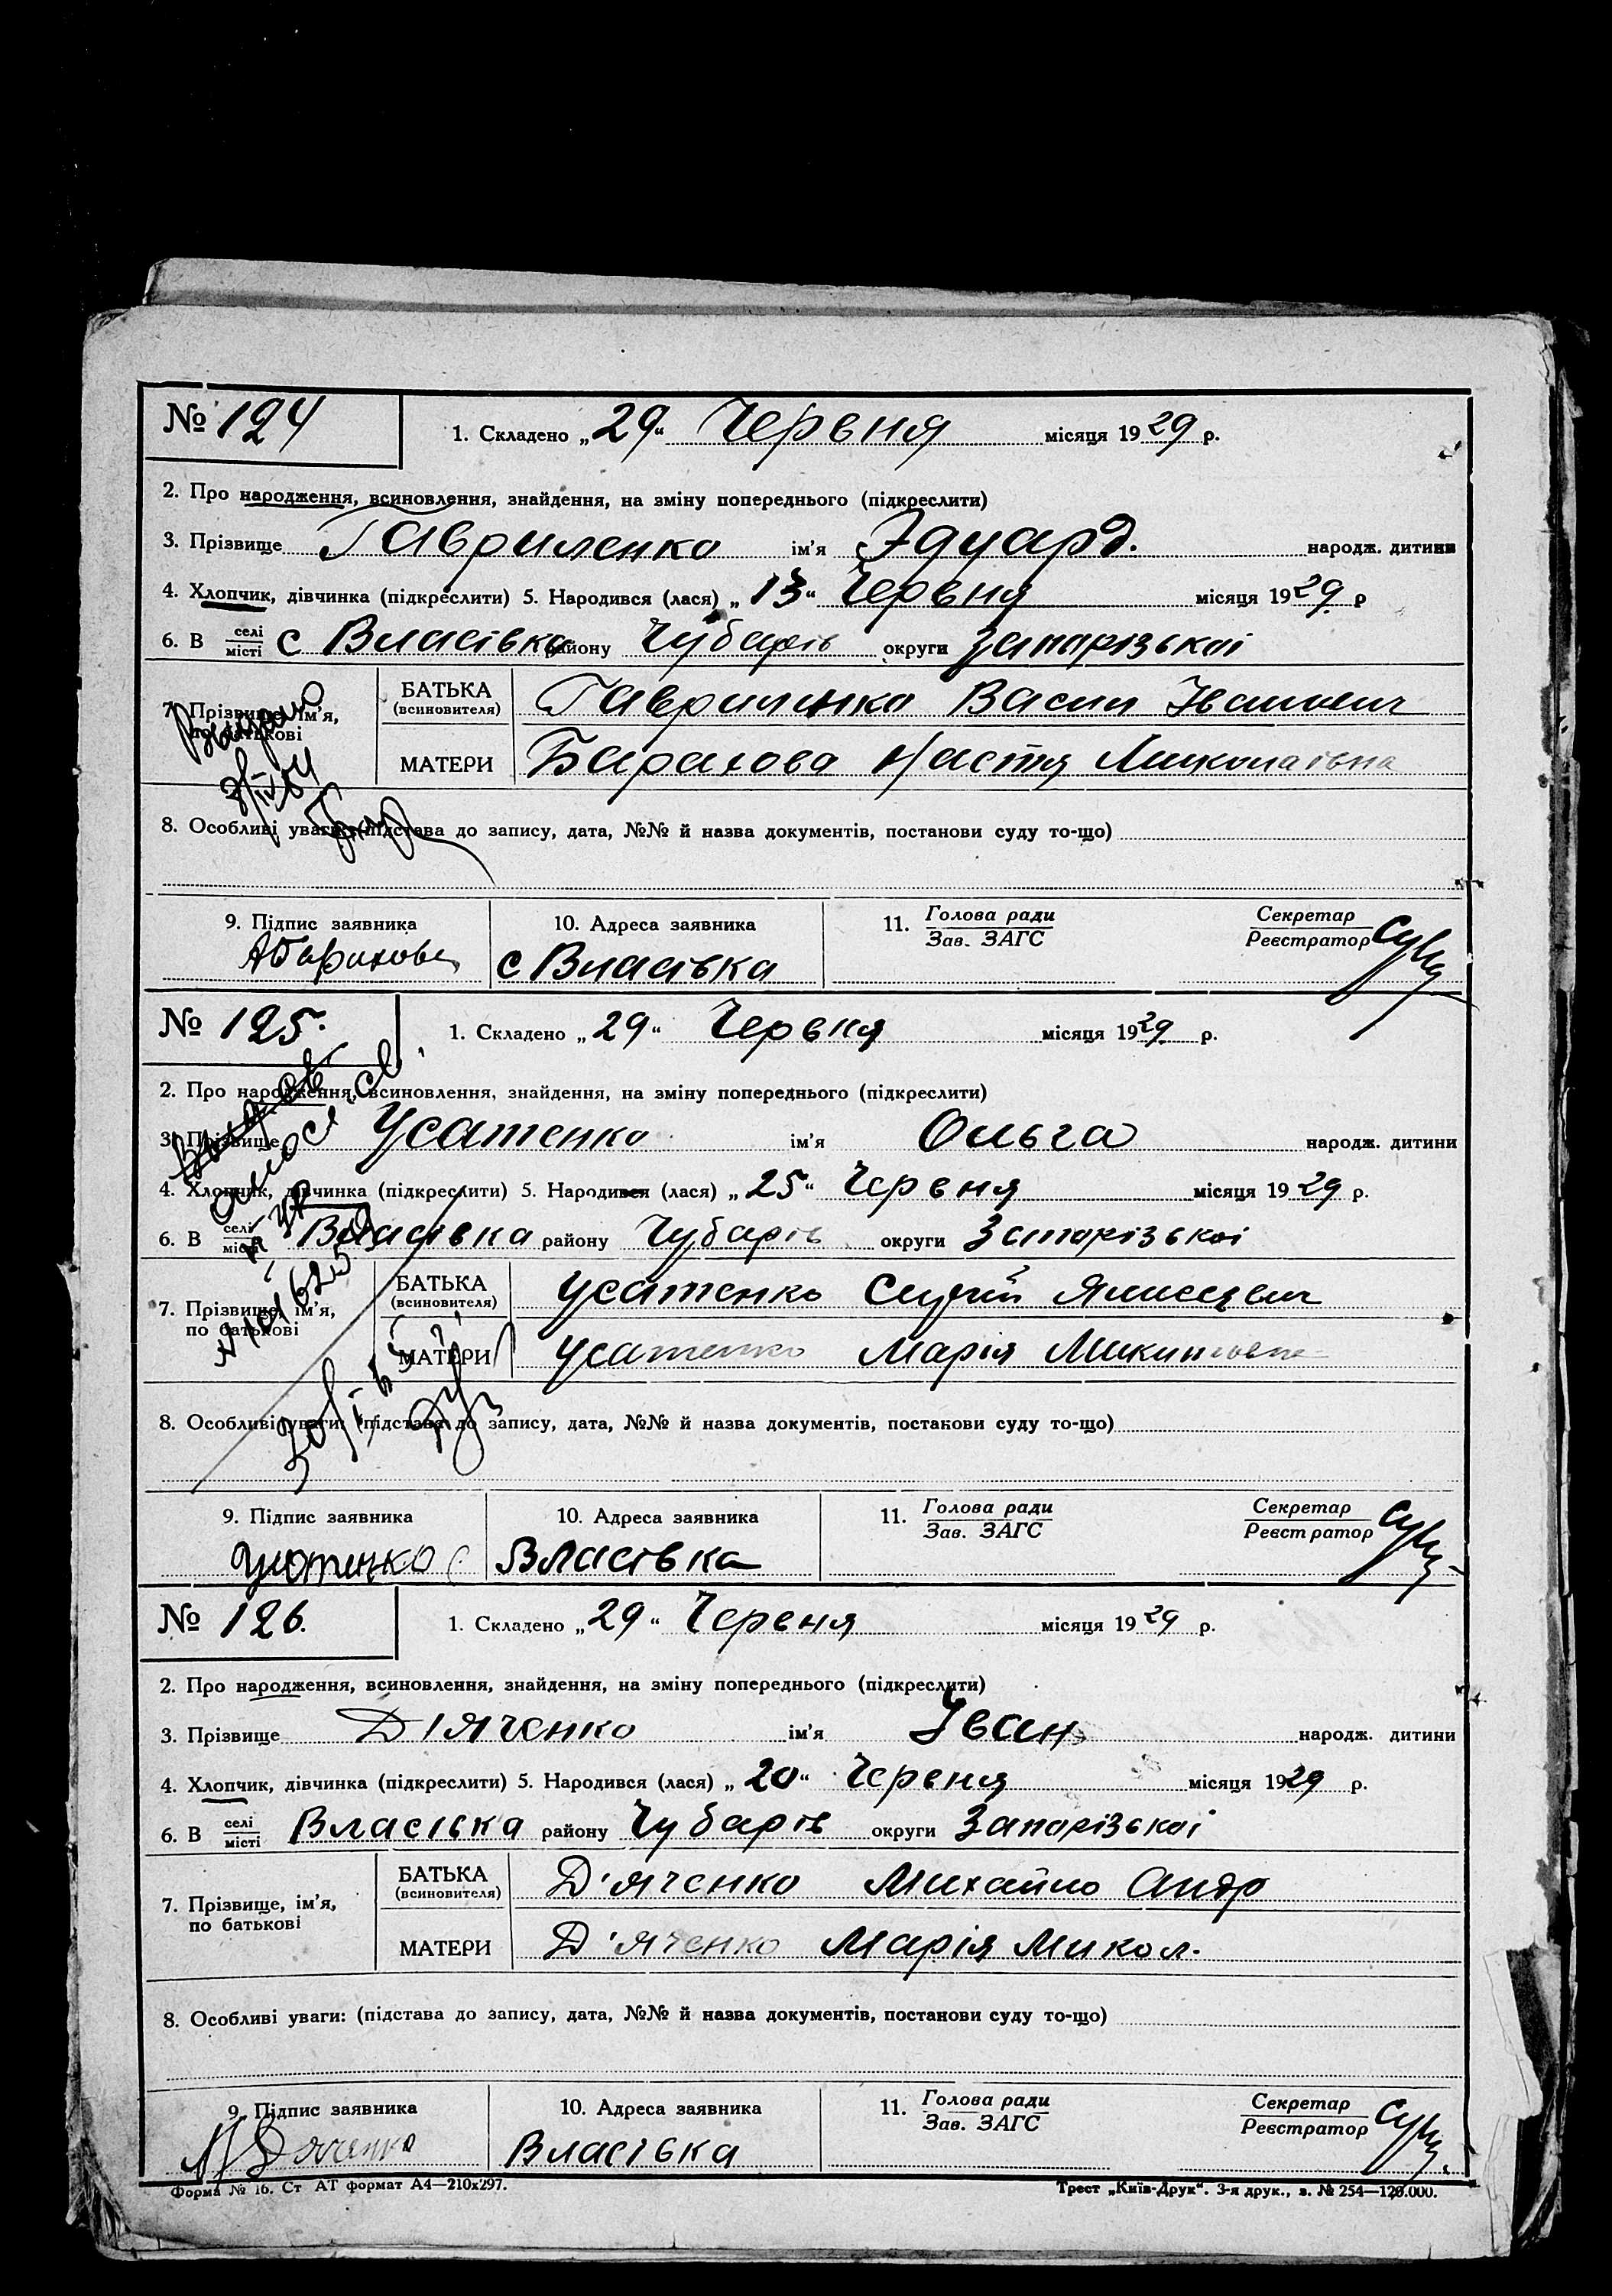 № 124
1. Складено „29“ Червня місяця 1929 р.
2. Про народження, всиновлення, знайдення, на зміну попереднього (підкреслити)
3. Прізвище Гавриленко ім'я Эдуард. народж. дитини
4. Хлопчик, дівчинка (підкреслити) 5. Народився (лася) „13“ Червня місяця 1929 р
6. В селі/місті с Власівка району Чубарів округи Запорізькоі
7. Прізвище, ім'я, по батькові
БАТЬКА (всиновителя) Гавриленко Васил Іванович
МАТЕРИ Барахова Настя Миколаівна
8. Особливі уваги: (підстава до запису, дата, №№ й назва документів, постанови суду то-що)
9. Підпис заявника 10. Адреса заявника 11. Голова ради Секретар
Зав. ЗАГС Реєстратор
АБарахова с Власівка
№ 125.
1. Складено „29“ Червня місяця 1929 р.
2. Про народження, всиновлення, знайдення, на зміну попереднього (підкреслити)
3. Прізвище Усатенко ім'я Ольга народж. дитини
4. Хлопчик, дівчинка (підкреслити) 5. Народився (лася) „25“ Червня місяця 1929 р.
6. В селі/місті Власівка району Чубарів округи Запорізькоі
7. Прізвище, ім'я, по батькові
БАТЬКА (всиновителя) Усатенко Сергій
МАТЕРИ Усатенко Марія
8. Особливі уваги: (підстава до запису, дата, №№ й назва документів, постанови суду то-що)
9. Підпис заявника 10. Адреса заявника 11. Голова ради Секретар
Зав. ЗАГС Реєстратор
Усатенко С Власівка
№ 126.
1. Складено „29“ Червня місяця 1929 р.
2. Про народження, всиновлення, знайдення, на зміну попереднього (підкреслити)
3. Прізвище Д'яченко ім'я Іван народж. дитини
4. Хлопчик, дівчинка (підкреслити) 5. Народився (лася) „20“ Червня місяця 1929 р.
6. В селі/місті Власівка району Чубарів округи Запорізькоі
7. Прізвище, ім'я, по батькові
БАТЬКА (всиновителя) Д'яченко Михайло Андр
МАТЕРИ Д'яченко Марія Микол.
8. Особливі уваги: (підстава до запису, дата, №№ й назва документів, постанови суду то-що)
9. Підпис заявника 10. Адреса заявника 11. Голова ради Секретар
Зав. ЗАГС Реєстратор
Власівка
Форма № 16. Ст АТ формат А4—210х297. Трест „Київ-Друк“. 3-я друк., з. № 254—120.000.